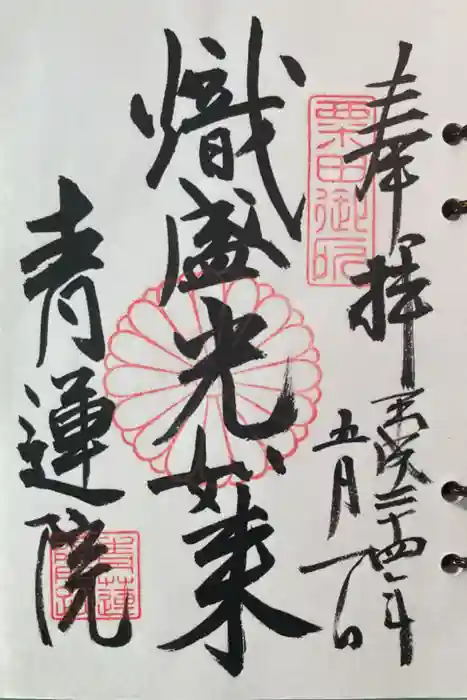 奉拝
平成二十四年
五月一日
粟田御所
熾盛光如来
青蓮院